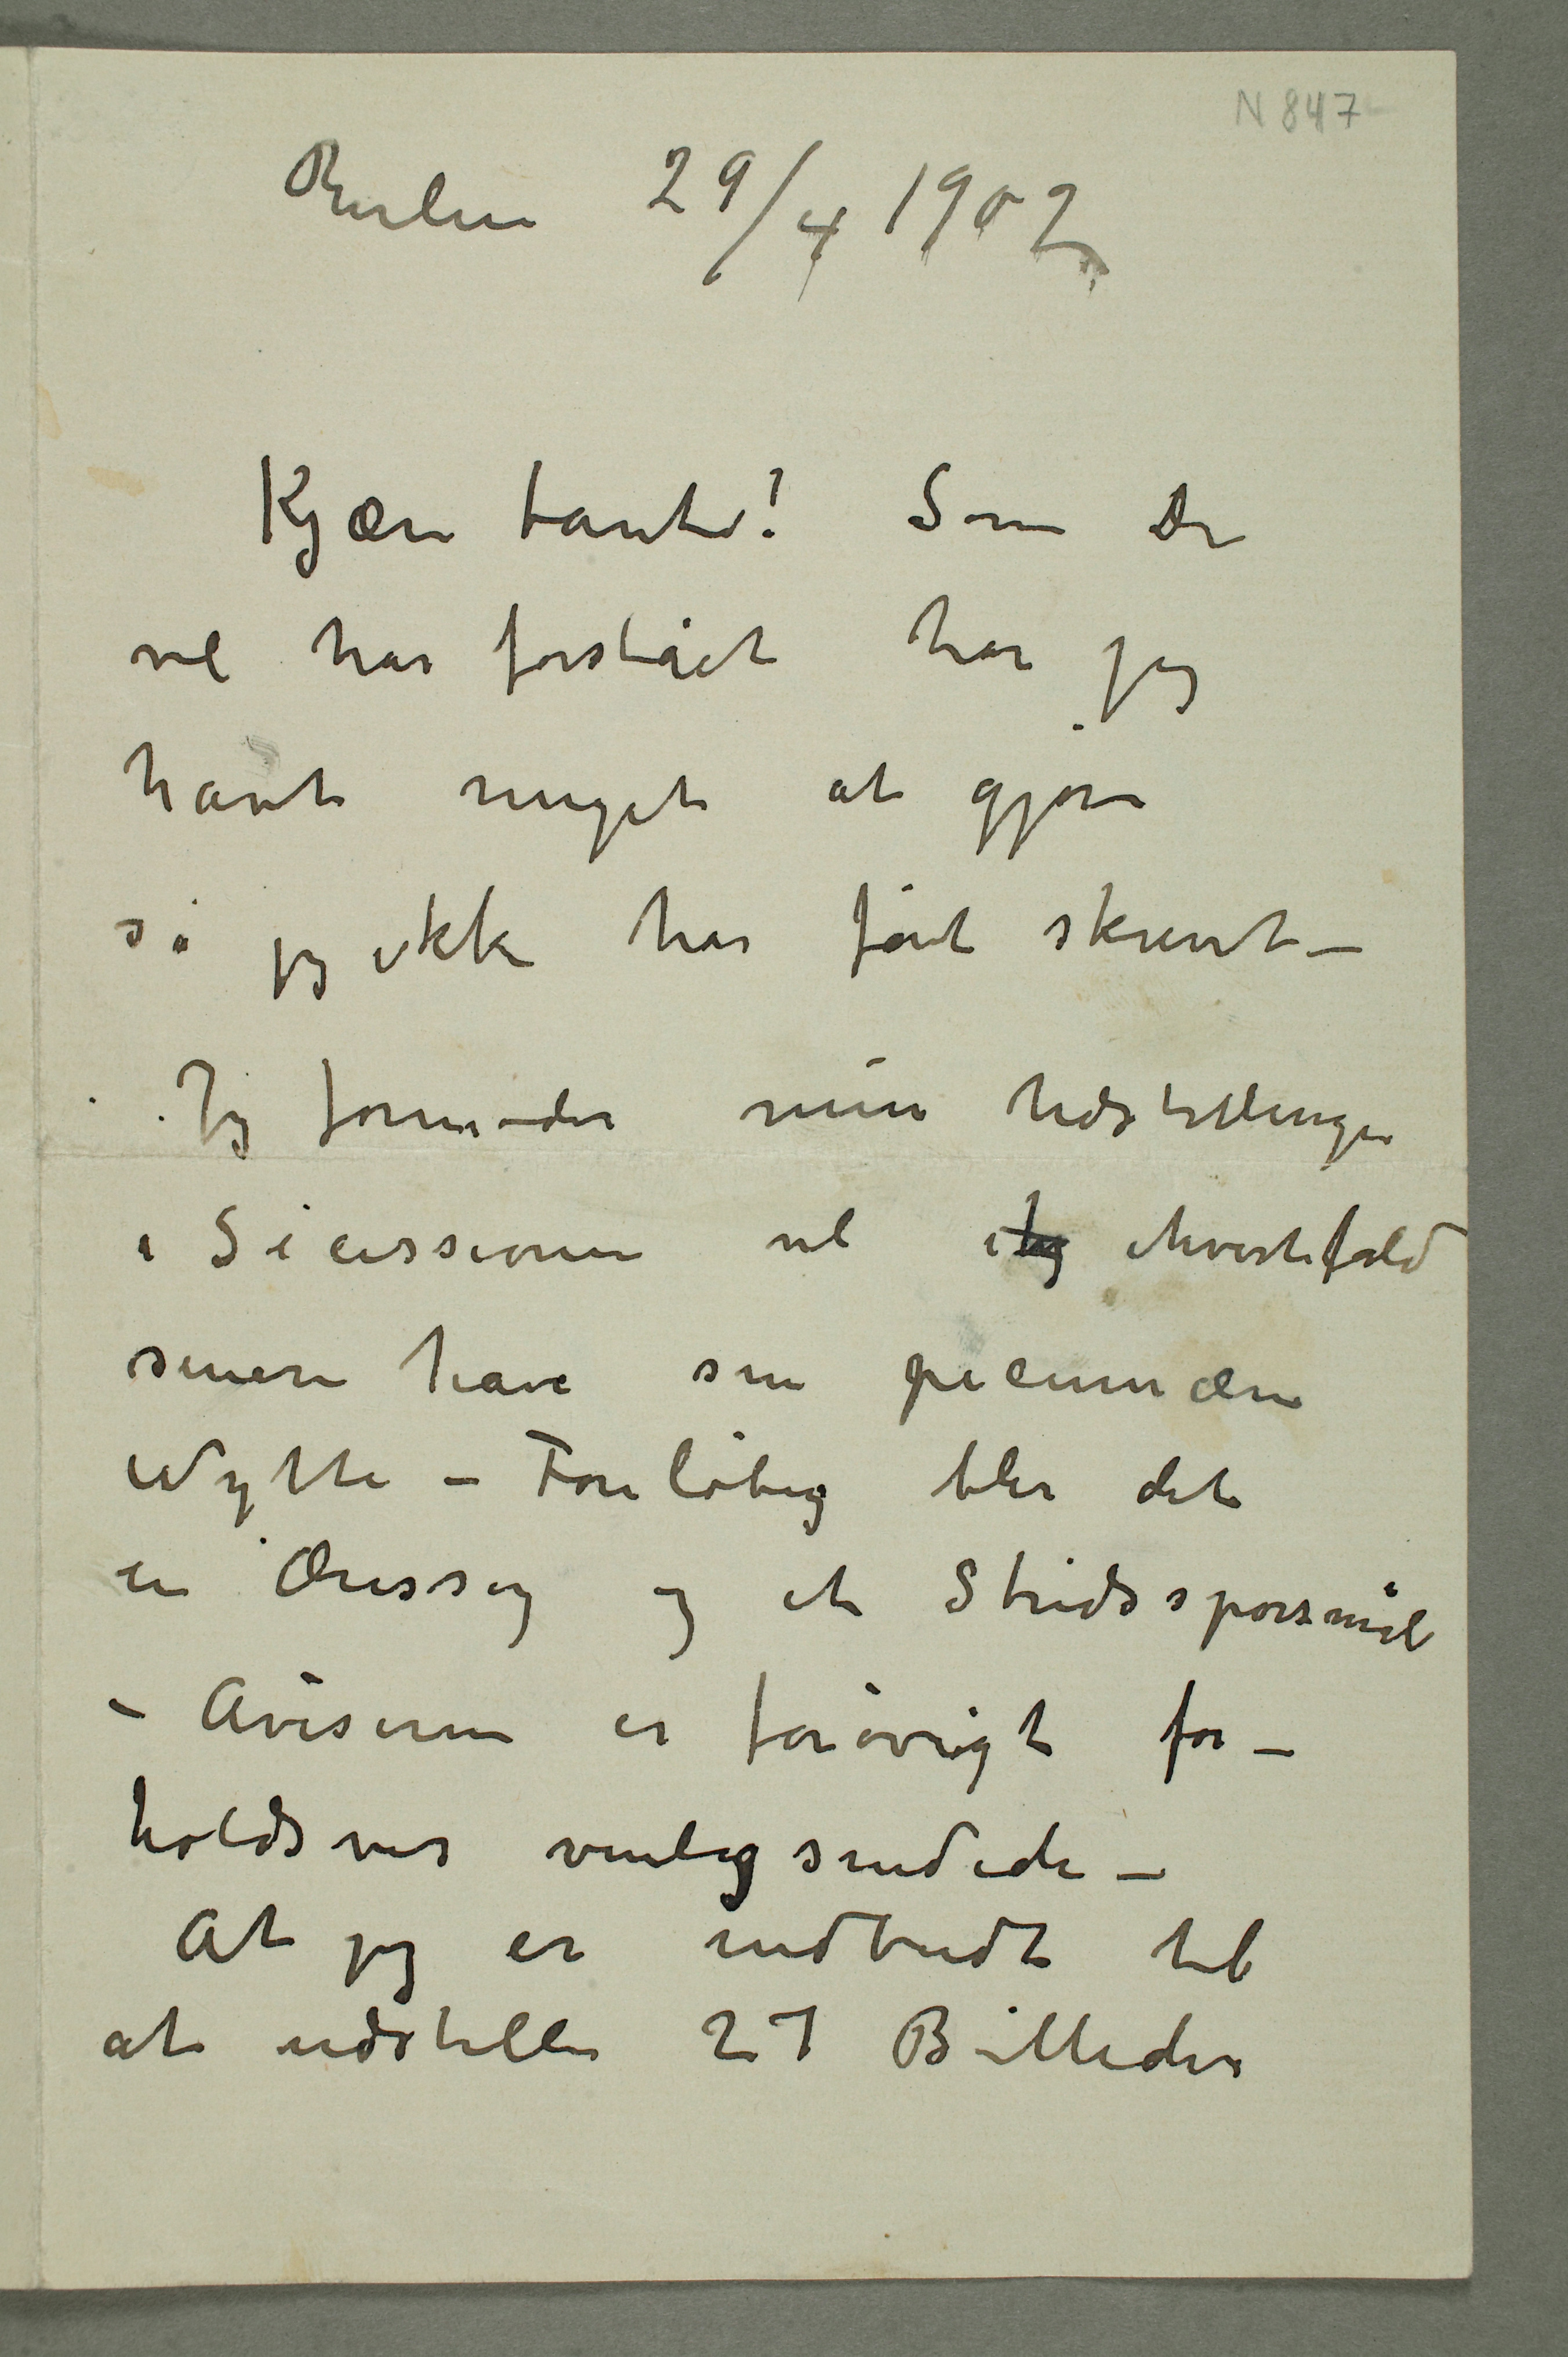 N 847
Berlin 29/4 1902
Kjære tante! Som De
vel har forstået har jeg
havt meget at gjøre
så jeg ikke har fåt skrevt –
Jeg formoder min Udstillingen
i Sicessionen vil ihvertfald
senere have sin picunnære
Nytte – Foreløbig blir det
en Æressag og et Stridsspørsmål
– Aviserne er forøvrigt for–
holdsvis venligsindede –
At jeg er indbudt til
at udstille 27 Billeder